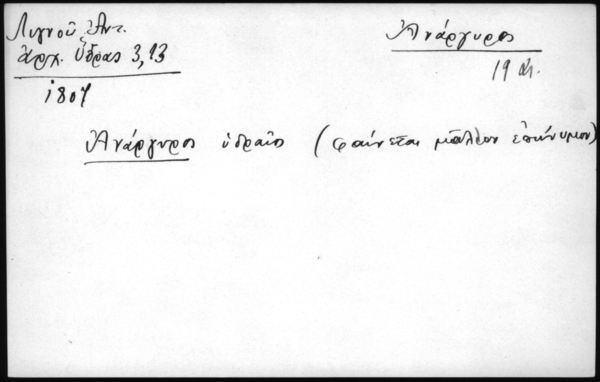 Λιγνοῦ Ἀντ.
ἀρχ. Ὕδρας 3,13
1807
Ἀνάργυρος
19 αἰ.
Ἀνάργυρος ὑδραῖος (φαίνεται μᾶλλον ἐπώνυμον)